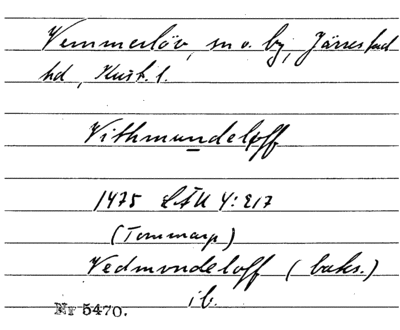 Vemmerlöv, sn o. by, Järrestad
hd, Krist. l.
Vithmundeløff
1475 LÄU 4:217
(Tommarp)
Vedmondeloff (baks.)
ib.
Nr 5470.